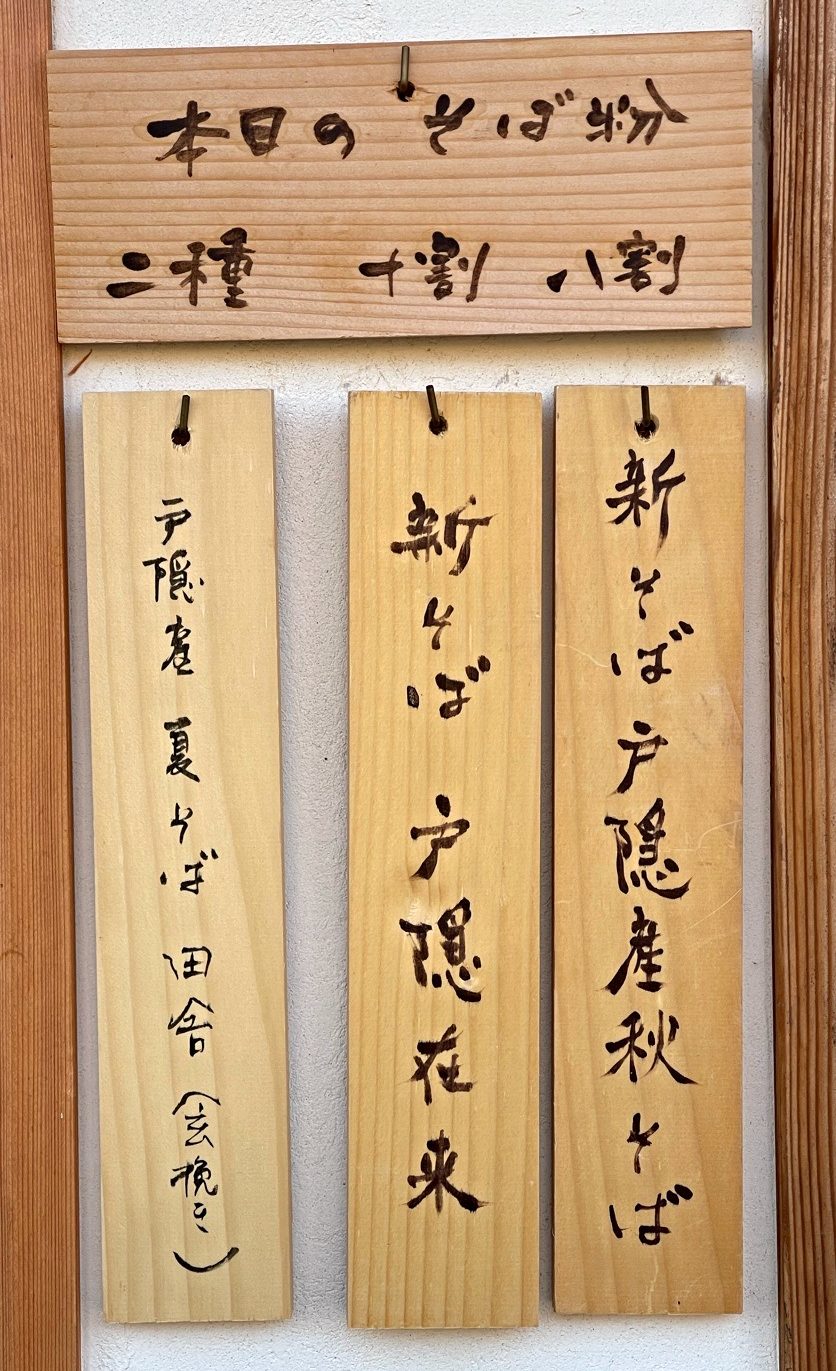 本日のそば粉
二種 十割 八割
新そば 戸隠産秋そば
新そば 戸隠在来
戸隠産 夏そば 田舎（玄挽き）